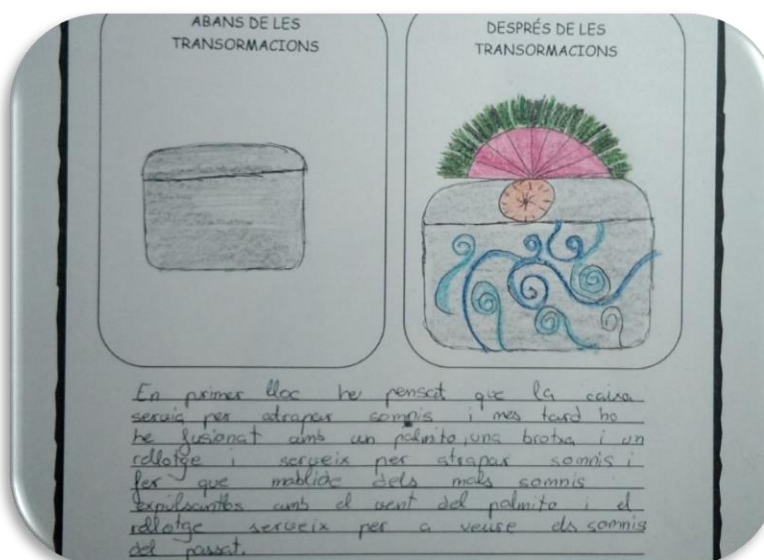 ABANS DE LES
TRANSORMACIONS
DESPRÉS DE LES
TRANSORMACIONS
En primer lloc he pensat que la caixa
serviia per atrapar somnis i mes tard ho
he fusionat amb un palmito, una brotxa i un
rellotge i serveix per atrapar somnis i
fer que mablide dels mals somnis
expulsantlos amb el vent del palmito i el
rellotge serveix per a veure els somnis
del passat.